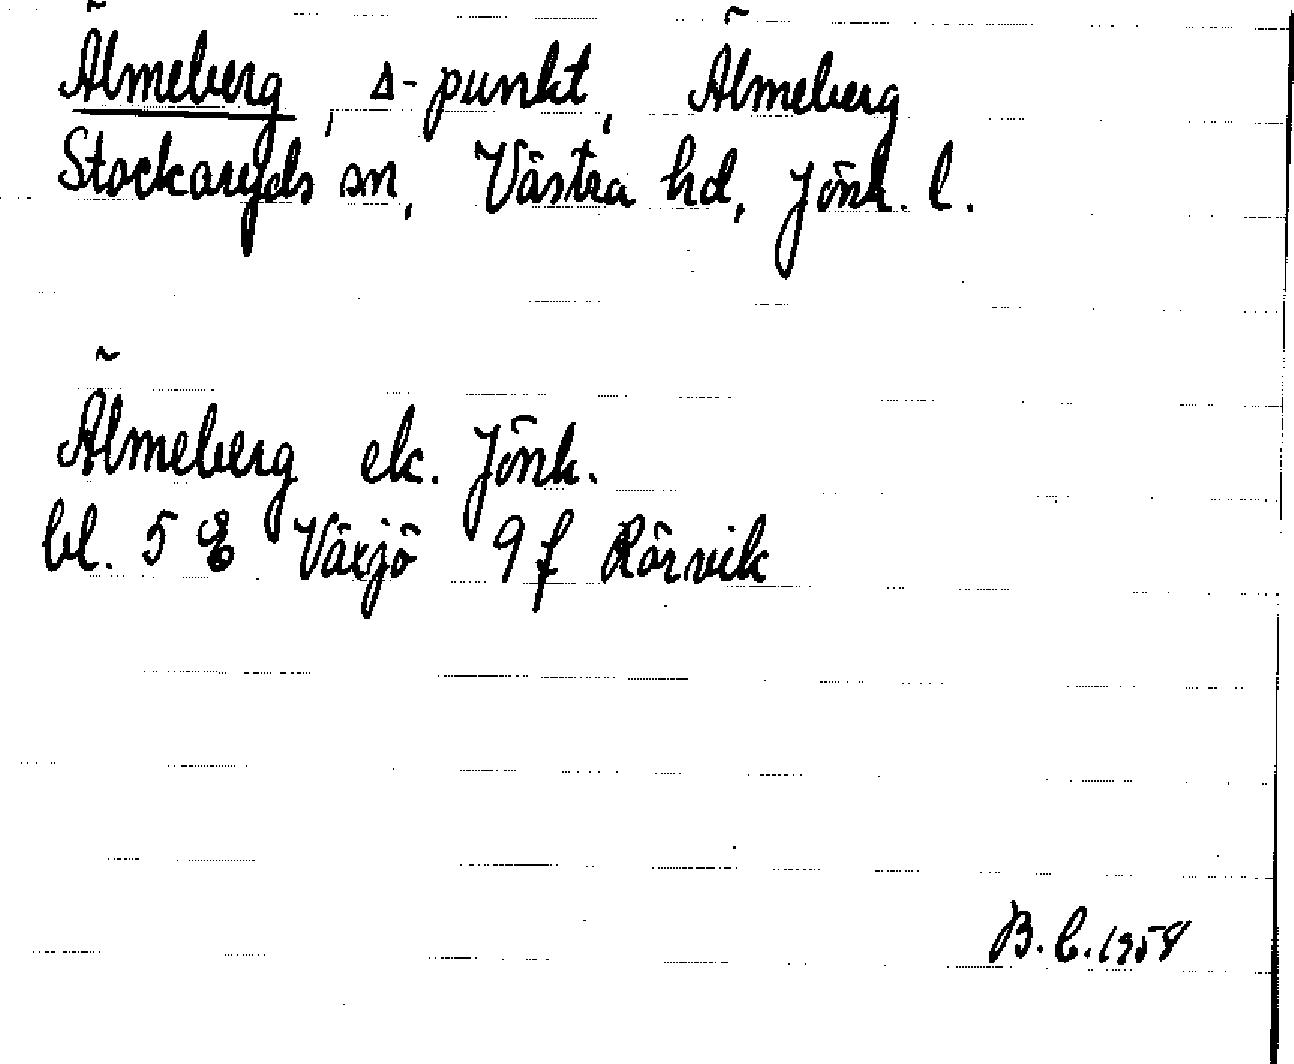 Älmeberg, Δ-punkt, Älmeberg
Stockaryds sn, Västra hd, Jönk. l.
Älmeberg ek. Jönk.
bl. 5 E Växjö 9f Rörvik
B. C. 1958